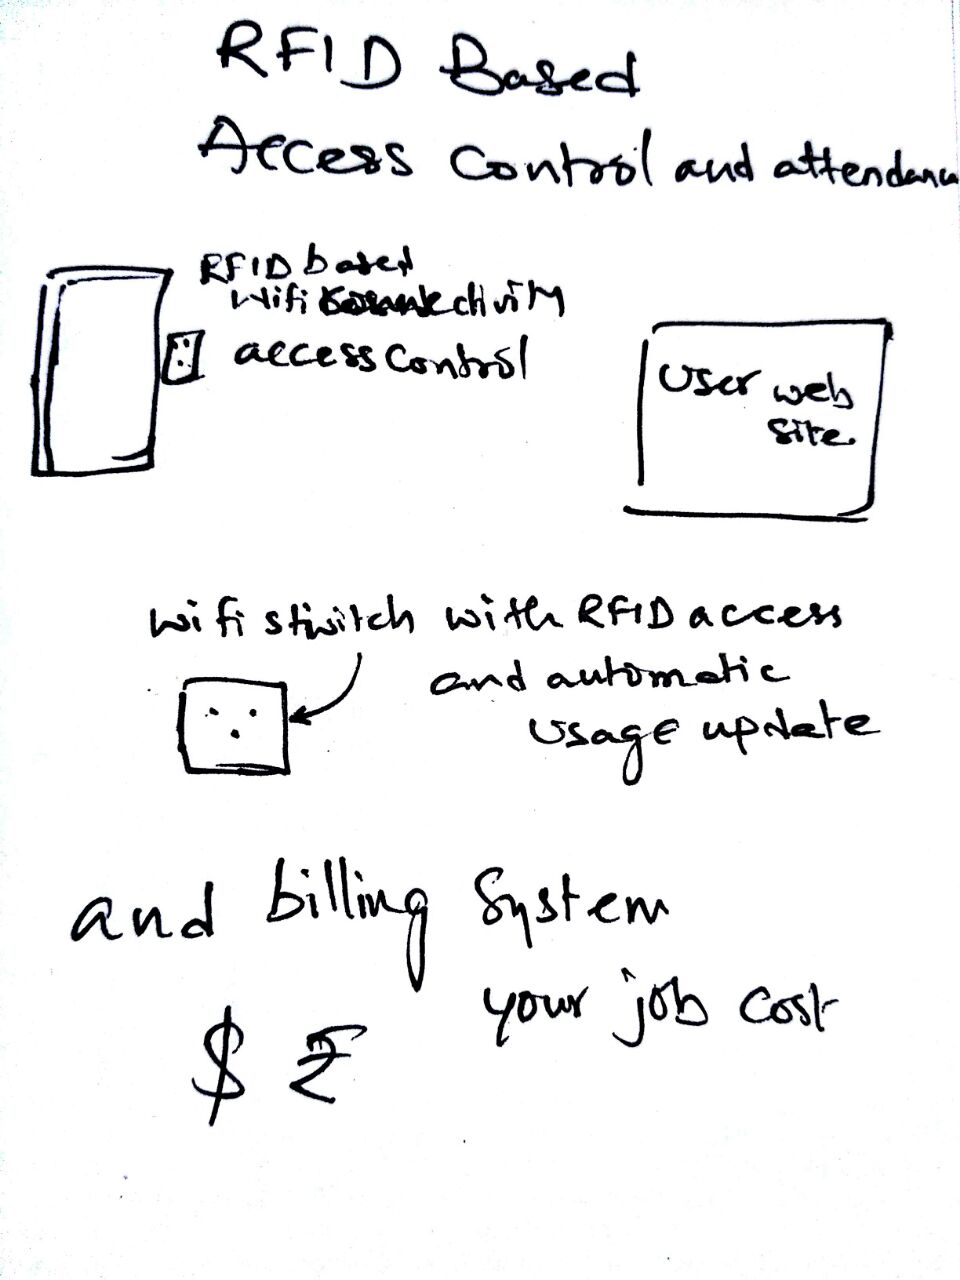 RFID Based
Access Control and attendance
RFID based
Wifi connectivity
access control
User web
site.
wifi switch with RFID access
and automatic
usage update
and billing system
your job cost
$ ₹